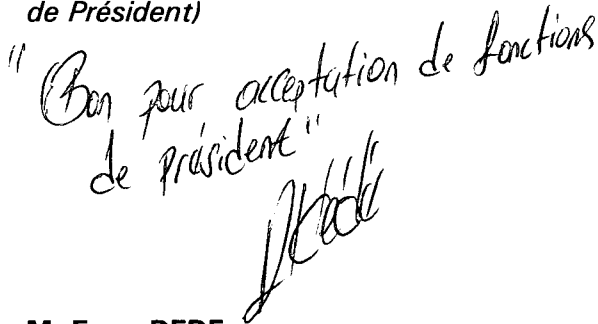 de Président)
"Bon pour acceptation de fonctions
de président"